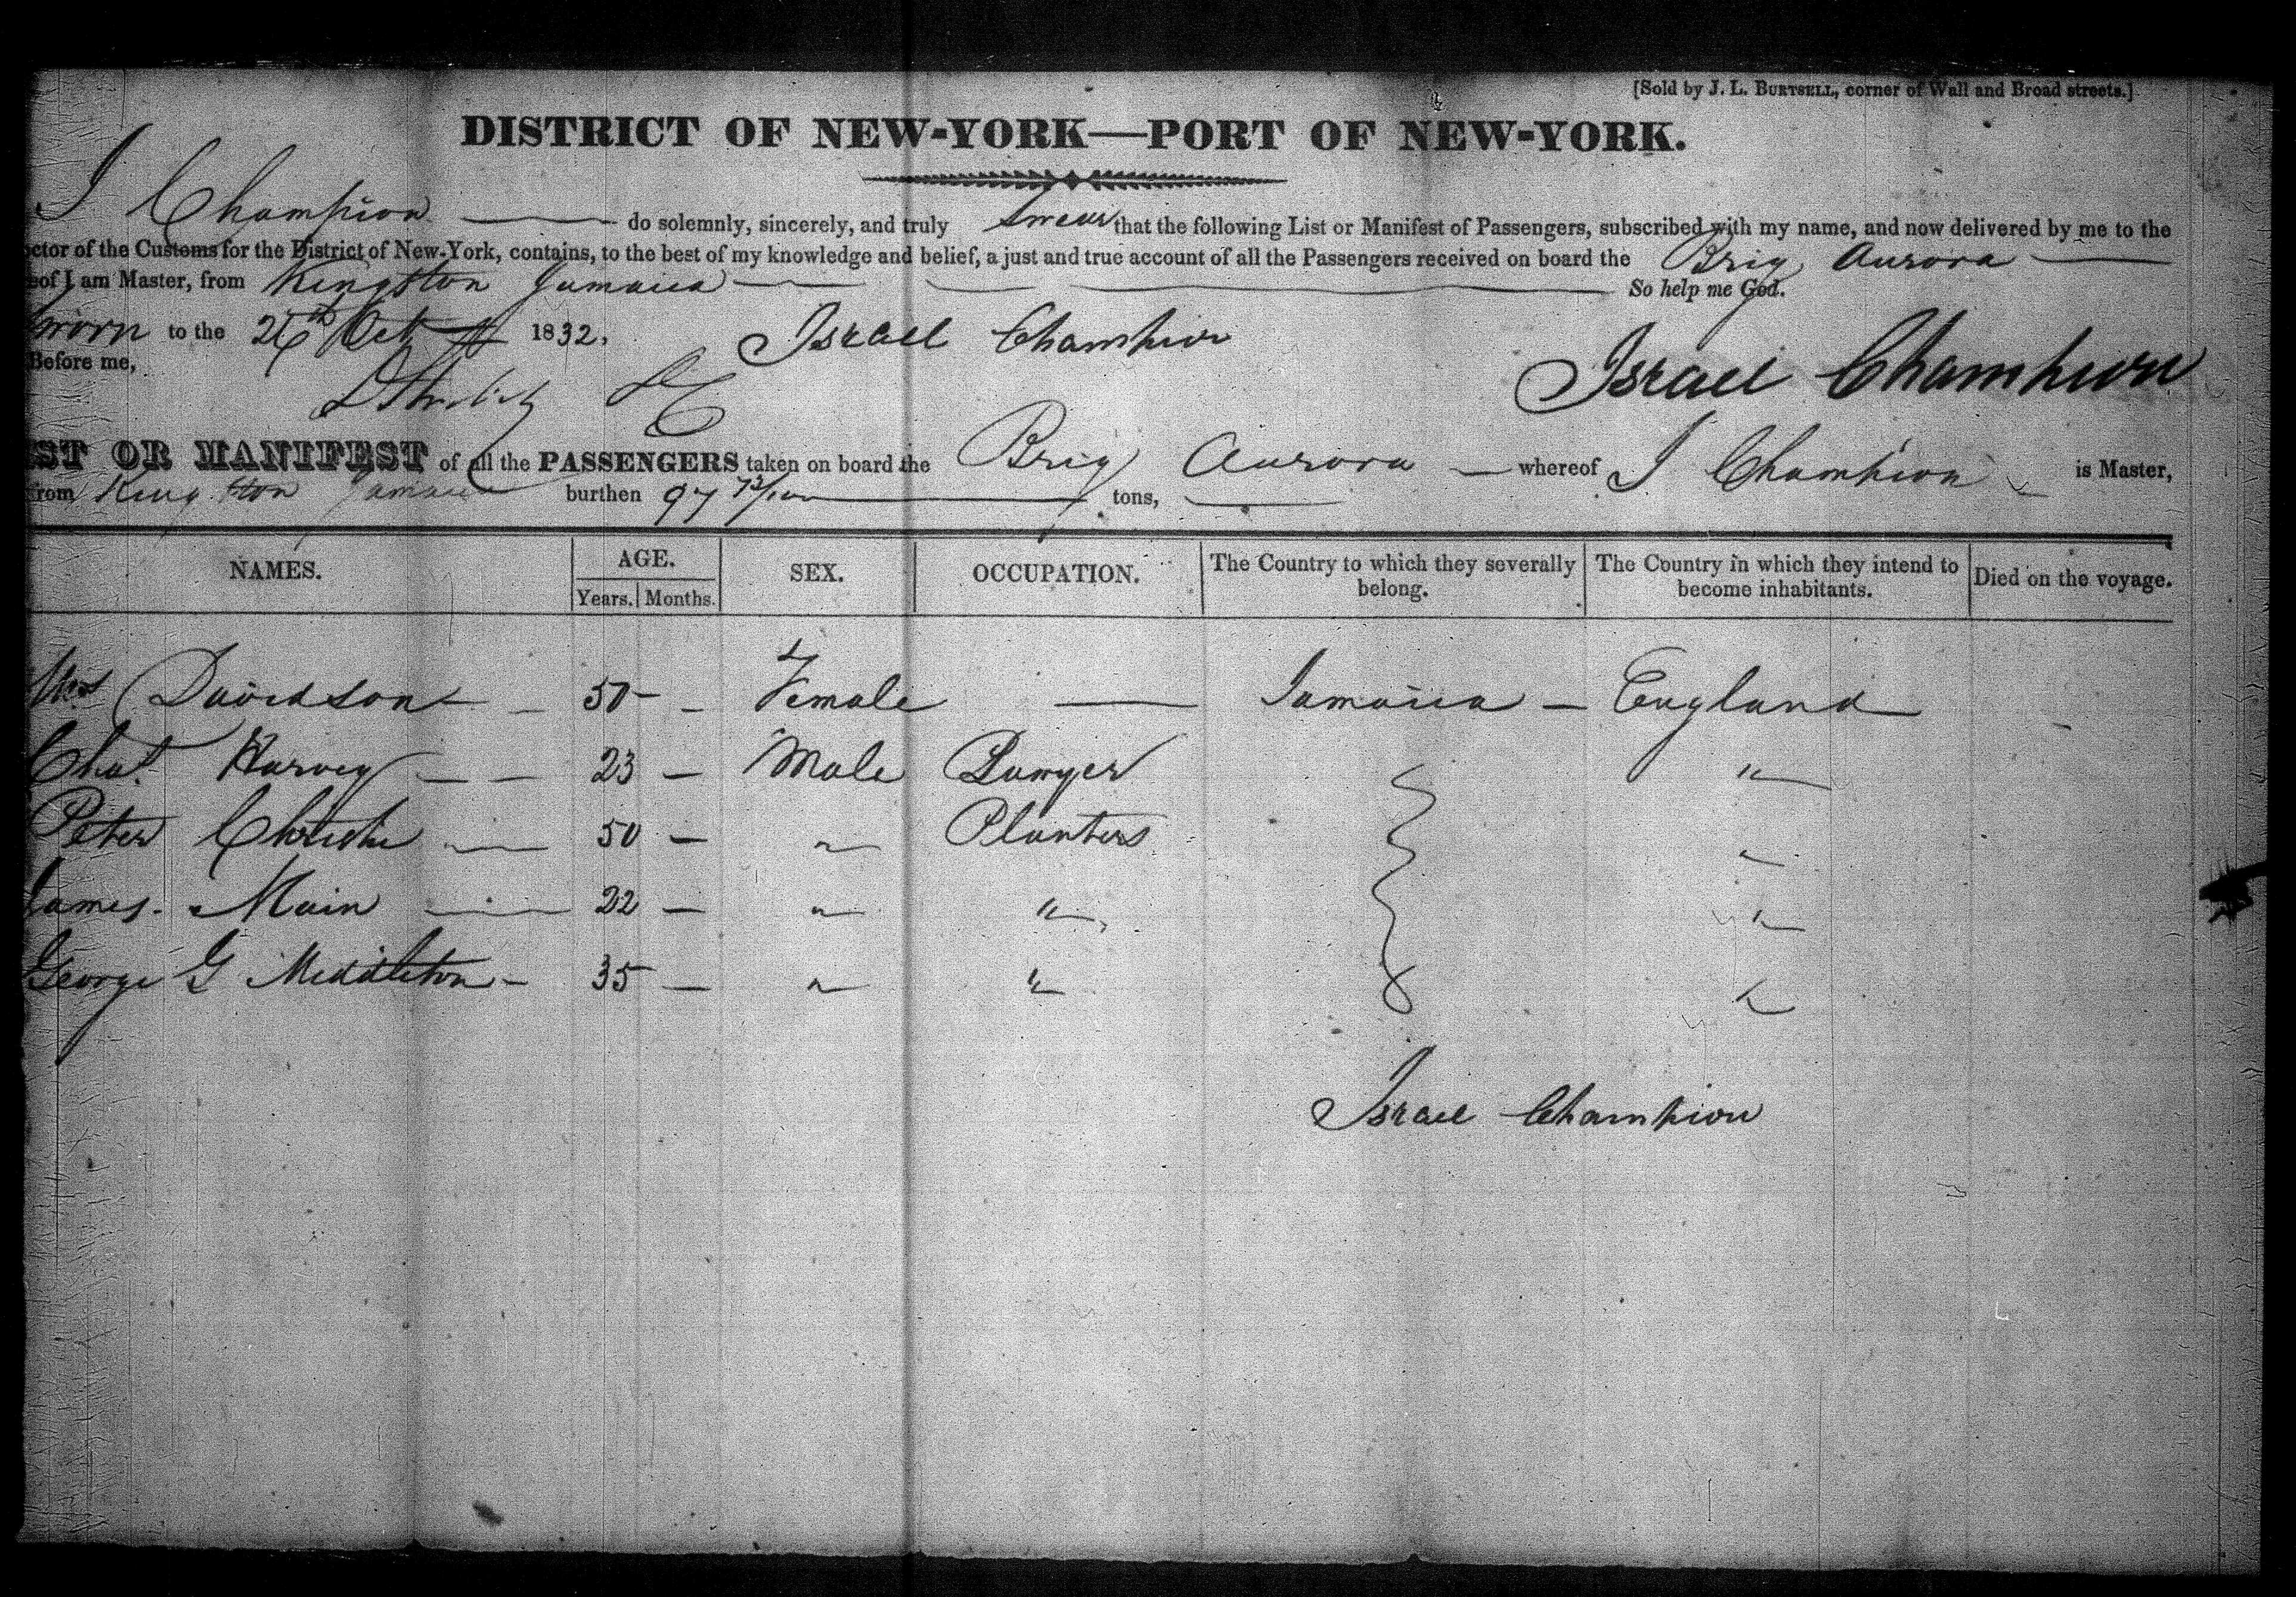 [Sold by J. L. BURTSELL, corner of Wall and Broad streets.]
DISTRICT OF NEW-YORK—PORT OF NEW-YORK.
I Champion do solemnly, sincerely, and truly Swear that the following List or Manifest of Passengers, subscribed with my name, and now delivered by me to the
ctor of the Customs for the District of New-York, contains, to the best of my knowledge and belief, a just and true account of all the Passengers received on board the Brig Aurora
eof I am Master, from Kingston Jamaica So help me God.
Sworn to the 26th Oct 1832. Israel Champion
Before me,
Israel Champion
ST OR MANIFEST of all the PASSENGERS taken on board the Brig Aurora — whereof I Champion is Master,
from Kingston Jamaica burthen 97 tons,
NAMES. AGE. SEX. OCCUPATION. The Country to which they severally belong. The Country in which they intend to become inhabitants. Died on the voyage.
Years. Months.
Mrs Davidson 50 - Female — Jamaica - England -
Chas. Harvey 23 - Male Lawyer "
Peter Christie 50 - " Planters "
James Main 22 - " " "
George G Middleton - 35 - " " "
Israel Champion